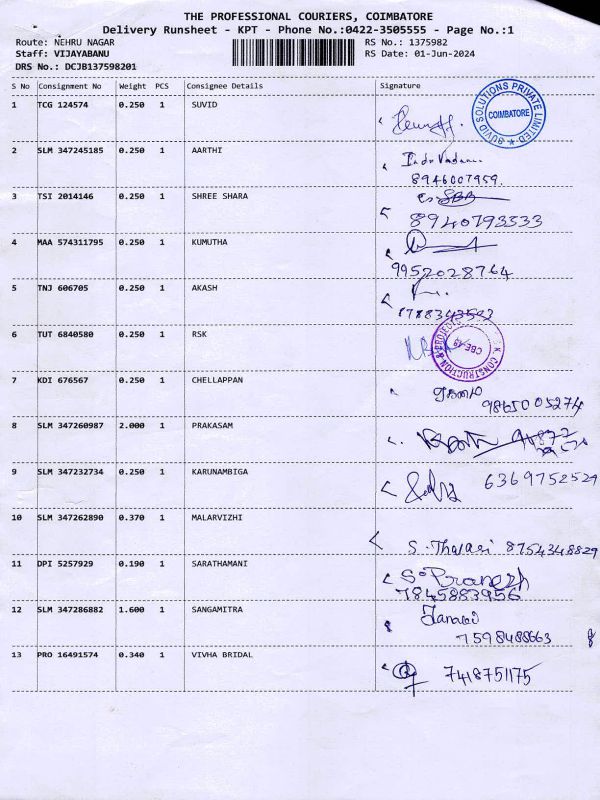 THE PROFESSIONAL COURIERS, COIMBATORE
Delivery Runsheet - KPT - Phone No.:0422-3505555 - Page No.:1
Route: NEHRU NAGAR RS No.: 1375982
Staff: VIJAYABANU RS Date: 01-Jun-2024
DRS No.: DCJB137598201
S No Consignment No Weight PCS Consignee Details Signature
1 TCG 124574 0.250 1 SUVID
SUVID SOLUTIONS PRIVATE LIMITED
COIMBATORE
2 SLM 347245185 0.250 1 AARTHI
8946007959
3 TSI 2014146 0.250 1 SHREE SHARA
8940793533
4 MAA 574311795 0.250 1 KUMUTHA
9952028764
5 TNJ 606705 0.250 1 AKASH
6 TUT 6840580 0.250 1 RSK
CONSTRUCTION & PROJECTS
7 KDI 676567 0.250 1 CHELLAPPAN
9865005274
8 SLM 347260987 2.000 1 PRAKASAM
9 SLM 347232734 0.250 1 KARUNAMBIGA
6369752529
10 SLM 347262890 0.370 1 MALARVIZHI
S. Thalasi 8754348829
11 DPI 5257929 0.190 1 SARATHAMANI
S. Pranesh
7845883956
12 SLM 347286882 1.600 1 SANGAMITRA
7598488663
13 PRO 16491574 0.340 1 VIVHA BRIDAL
7418751175